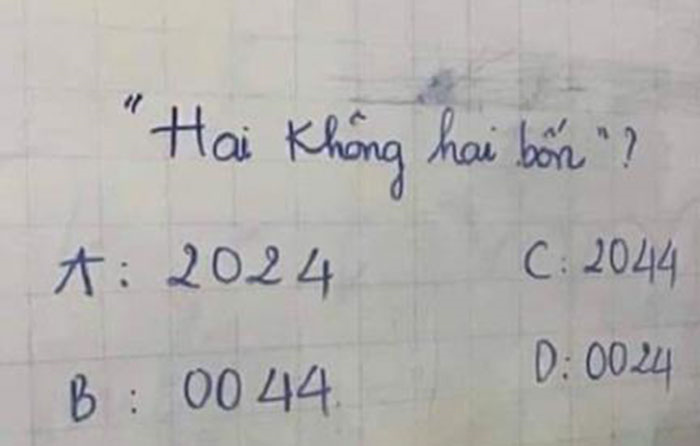 "Hai Không hai bốn"?
A: 2024 C: 2044
B: 0044 D: 0024